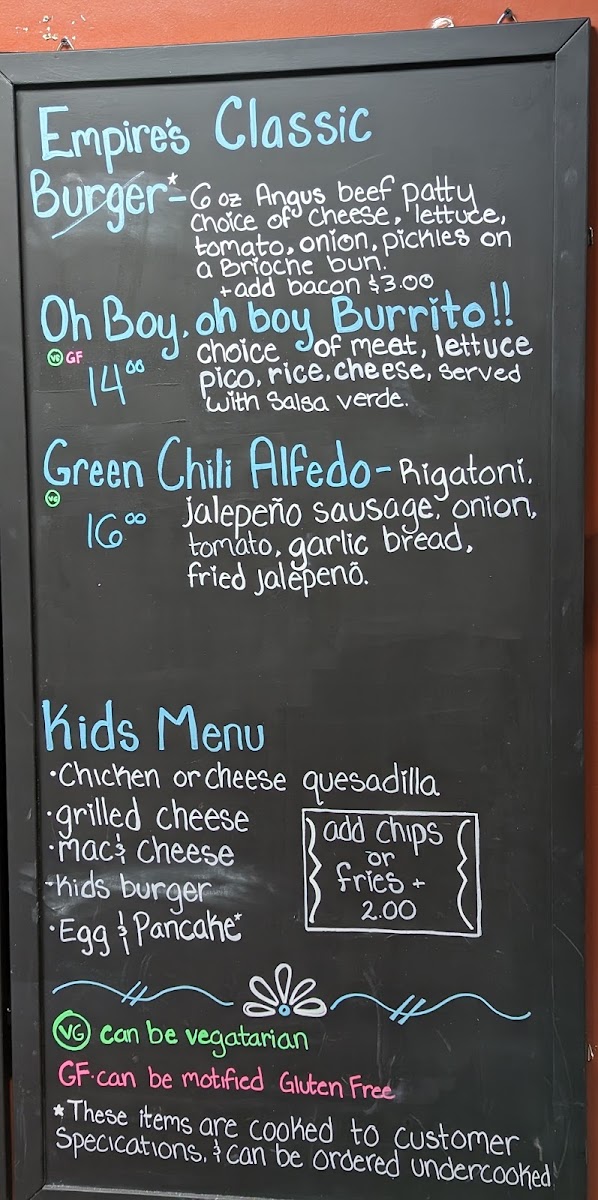 Empire's Classic
Burger*- 6 oz Angus beef patty
choice of cheese, lettuce,
tomato, onion, pickles on
a Brioche bun.
+add bacon $3.00
Oh Boy, oh boy Burrito!!
VG GF
14.00
choice of meat, lettuce
pico, rice, cheese, served
with salsa verde.
Green Chili Alfedo- Rigatoni,
VG
16.00
jalepeño sausage, onion,
tomato, garlic bread,
fried jalepenõ.
Kids Menu
·Chicken or cheese quesadilla
·grilled cheese
·mac & cheese
·kids burger
·Egg & Pancake*
add chips
or
fries +
2.00
VG can be vegatarian
GF·can be motified Gluten Free
*These items are cooked to customer
specications, & can be ordered undercooked